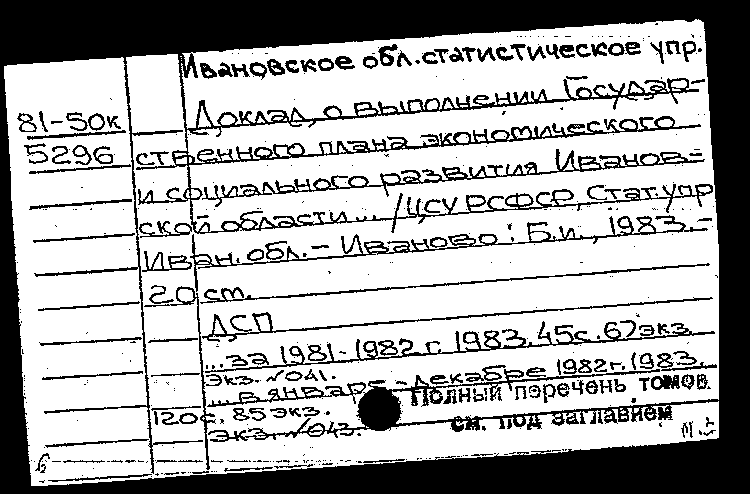 Ивановское обл. статистическое упр.
81-50к Доклад о выполнении Государ-
5296 ственного плана экономического
и социального развития Иванов-
ской области... / ЦСУ РСФСР, Стат. упр
Иван. обл. - Иваново: Б.и., 1983. -
20 см.
ДСП
...за 1981-1982 г. 1983. 45с. 67 экз.
Экз. №041.
...в январе-декабре 1982 г. 1983.
120с. 85 экз.
Экз. №043.
Полный перечень томов
см. под заглавием